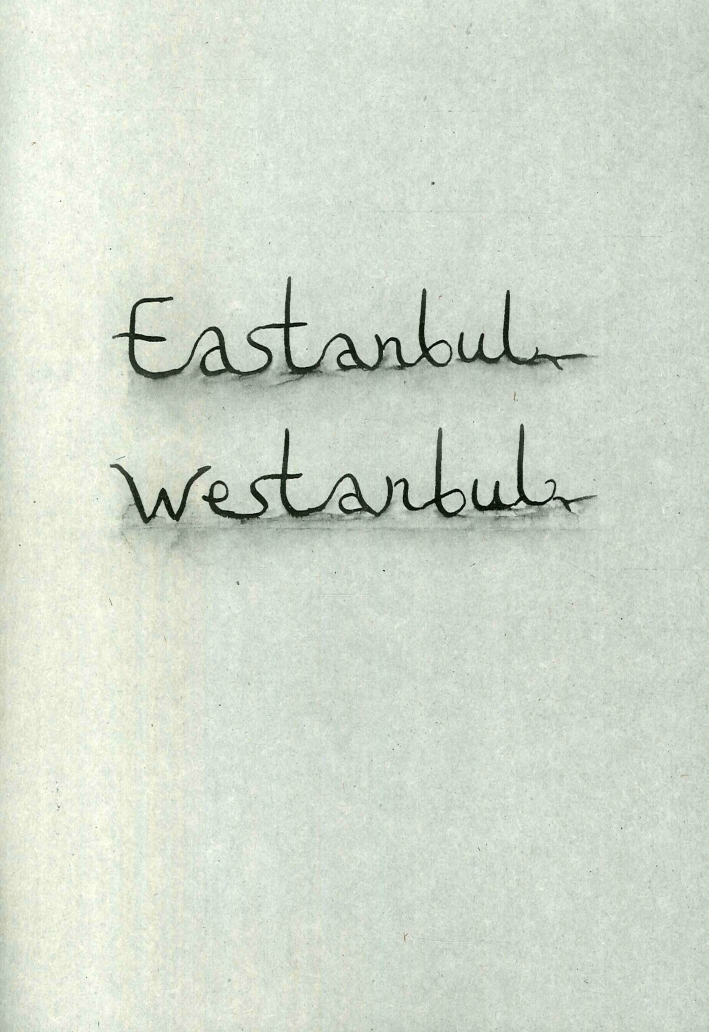 Eastanbul
Westanbul